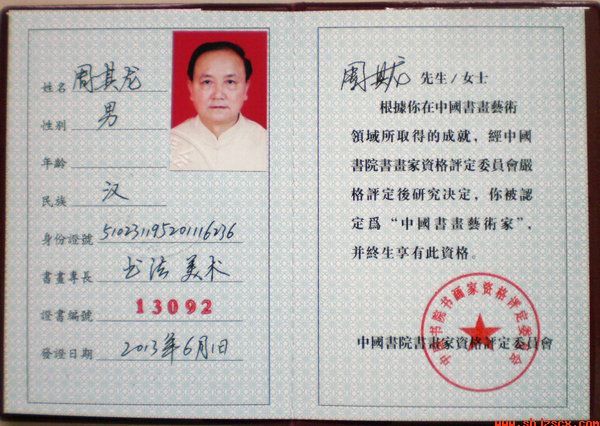 姓名 周其龙
性别 男
年齡
民族 汉
身份證號 510231195201116236
書畫專長 书法 美术
證書編號 13092
發證日期 2013年6月1日
周其龙 先生/女士
根據你在中國書畫藝術
領域所取得的成就，經中國
書院書畫家資格評定委員會嚴
格評定後研究决定，你被認
定爲“中國書畫藝術家”，
并終生享有此資格。
中国书院书画家资格评定委员会
中國書院書畫家資格評定委員會